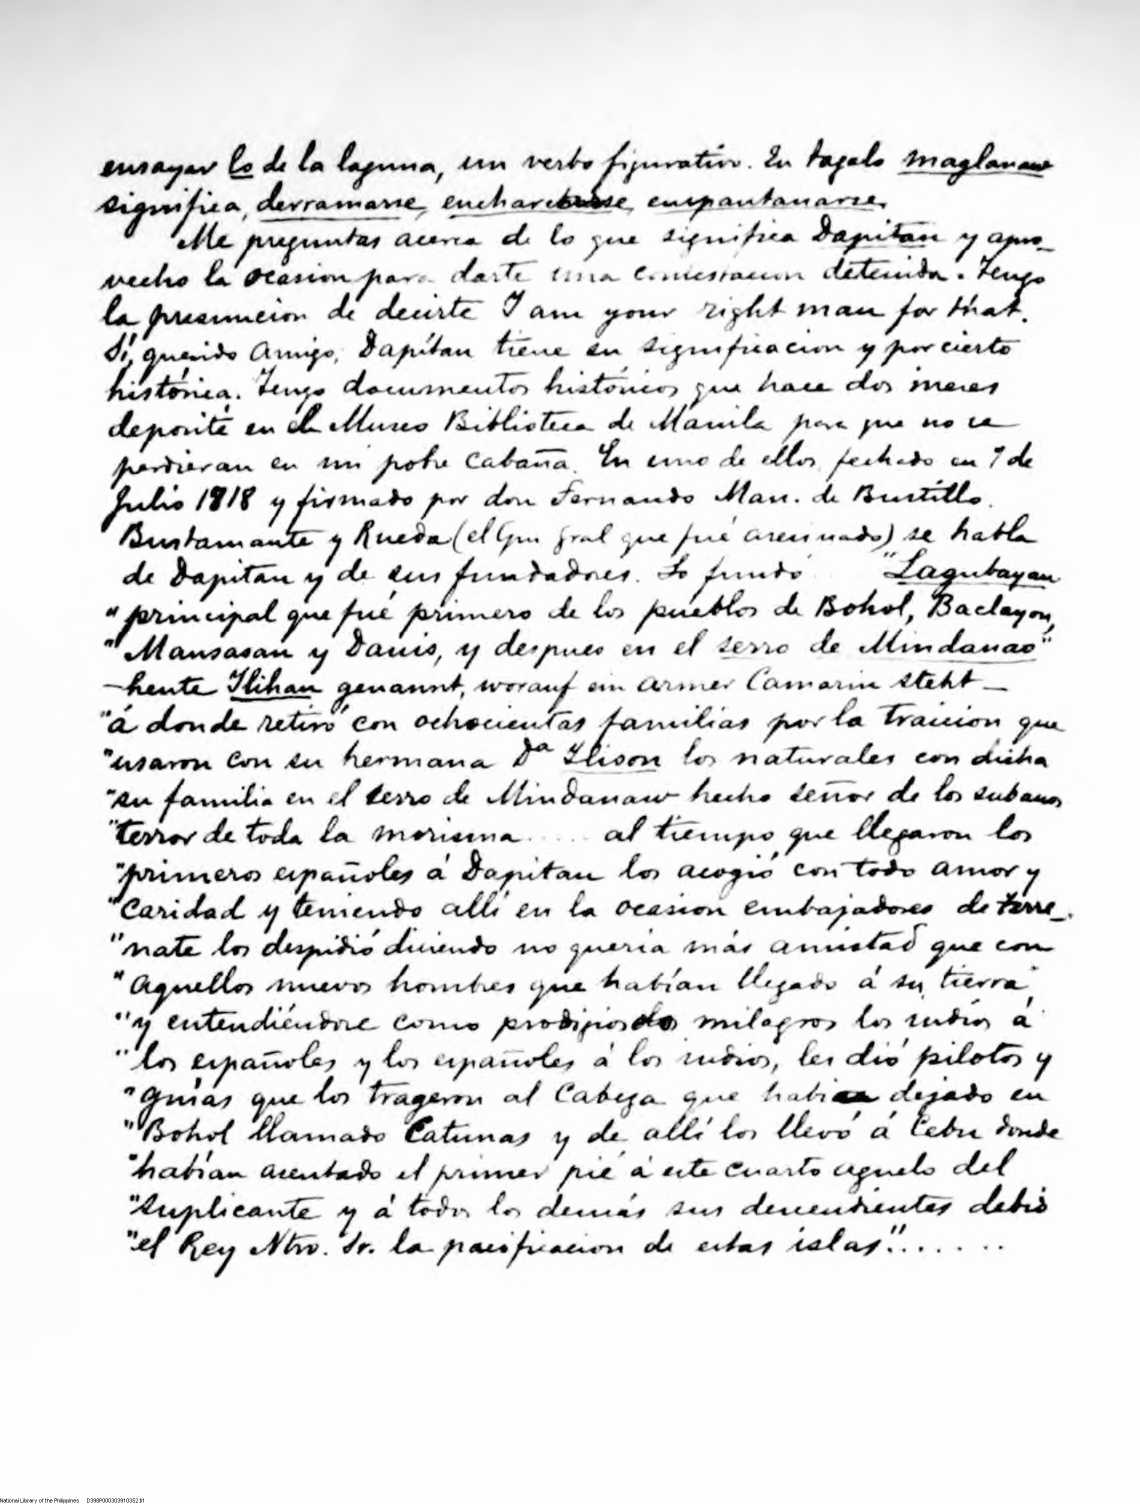 ensayar lo de la laguna, un verbo figurativo. En tagalo maglanaw
significa, derramarse, encharcarse, empantanarse.
Me preguntas acerca de lo que significa Dapitan y apro-
vecho la ocasion para darte una contestacion detenida. Tengo
la presuncion de decirte I am your right man for that.
Sí, querido Amigo, Dapítan tiene su significacion y por cierto
histórica. Tengo documentos históricos que hace dos meses
deposité en el Museo Biblioteca de Manila para que no se
perdieran en mi pobre cabaña. En uno de ellos, fechado en 7 de
Julio 1818 y firmado por don Fernando Man. de Bustillo.
Bustamante y Rueda (el Gm Gral que fué asesinado) se habla
de Dapitan y de sus fundadores. Lo fundó "Lagubayan
"principal que fué primero de los pueblos de Bohol, Baclayon,
"Mansasan y Dauis, y despues en el serro de Mindanao"
-heute Ilihan genannt, worauf ein armer Camarin steht-
"á donde retiró con ochocientas familias por la traicion que
"usaron con su hermana Dª Ilison los naturales con dicha
"su familia en el serro de Mindanaw hecho señor de los subanos
"terror de toda la morisma ..... al tiempo que llegaron los
"primeros españoles á Dapitan los acogió con todo amor y
"caridad y teniendo allí en la ocasion embajadores de terre-
"nate los despidió diciendo no queria más amistad que con
"aquellos nuevos hombres que habían llegado á su tierra,
"y entendiéndose como prodigiosos milagros los indios á
"los españoles y los españoles á los indios, les dió pilotos y
"guías que los trageron al Cabeza que habia dejado en
"Bohol llamado Catunas y de allí los llevó á Cebu donde
"habían asentado el primer pié á este cuarto aguelo del
"suplicante y á todos los demás sus descendientes debió
"el Rey Ntro. Sr. la pacificacion de estas islas".......
National Library of the Philippines